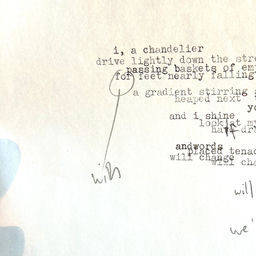 i, a chandelier
drive lightly down the stre
passing baskets of em
for feet nearly falling
a gradient stirring
heaped next
yo
and i shine
look at my
half dr
andwords
placed tenac
will change
will cha
with
will
we'